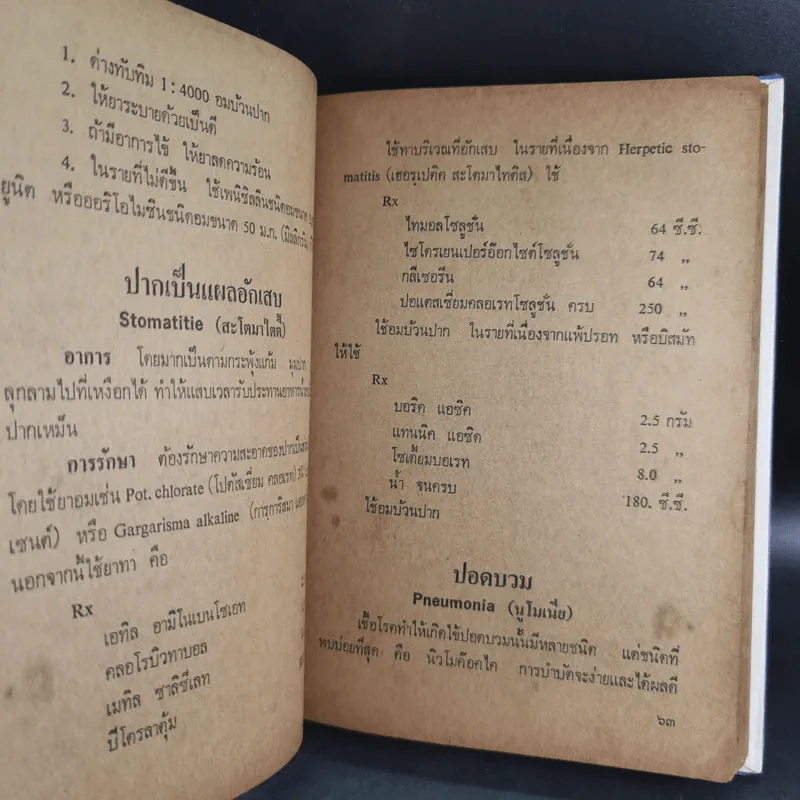 1. ด่างทับทิม 1 : 4000 อมบ้วนปาก
2. ให้ยาระบายด้วยเป็นดี
3. ถ้ามีอาการไข้ ให้ยาลดความร้อน
4. ในรายที่ไม่ดีขึ้น ใช้เพนิซิลลินชนิดอมขนาด
ยูนิต หรือออริโอไมซินชนิดอมขนาด 50 ม.ก. (มิลลิกรัม)
ปากเป็นแผลอักเสบ
Stomatitie (สะโตมาไตตี้)
อาการ โดยมากเป็นตามกระพุ้งแก้ม มุมปาก
ลุกลามไปที่เหงือกได้ ทำให้แสบเวลารับประทานอาหาร
ปากเหม็น
การรักษา ต้องรักษาความสะอาดของปาก
โดยใช้ยาอมเช่น Pot. chlorate (โปตัสเซี่ยม คลอเรท)
เซนต์) หรือ Gargarisma alkaline (การุการิสมา
นอกจากนี้ใช้ยาทา คือ
Rx
เอทิล อามิโนเบนโซเอท
คลอโรบิวทาบอล
เมทิล ซาลิซีเลท
ปีโตรลาตุ้ม
ใช้ทาบริเวณที่อักเสบ ในรายที่เนื่องจาก Herpetic sto-
matitis (เฮอรฺเปติค สะโตมาไทติส) ใช้
Rx
ไทมอลโซลูชั่น 64 ซี.ซี.
ไฮโดรเยนเปอร์อ๊อกไซด์โซลูชั่น 74 „
กลีเซอรีน 64 „
ปอแตสเซี่ยมคลอเรทโซลูชั่น ครบ 250 „
ใช้อมบ้วนปาก ในรายที่เนื่องจากแพ้ปรอท หรือบิสมัท
ให้ใช้
Rx
บอริค แอซิด 2.5 กรัม
แทนนิค แอซิด 2.5 „
โซเดี้ยมบอเรท 8.0 „
น้ำ จนครบ 180. ซี.ซี.
ใช้อมบ้วนปาก
ปอดบวม
Pneumonia (นูโมเนีย)
เชื้อโรคทำให้เกิดไข้ปอดบวมนั้นมีหลายชนิด แต่ชนิดที่
พบบ่อยที่สุด คือ นิวโมค๊อคไค การบำบัดจะง่ายและได้ผลดี
๖๓